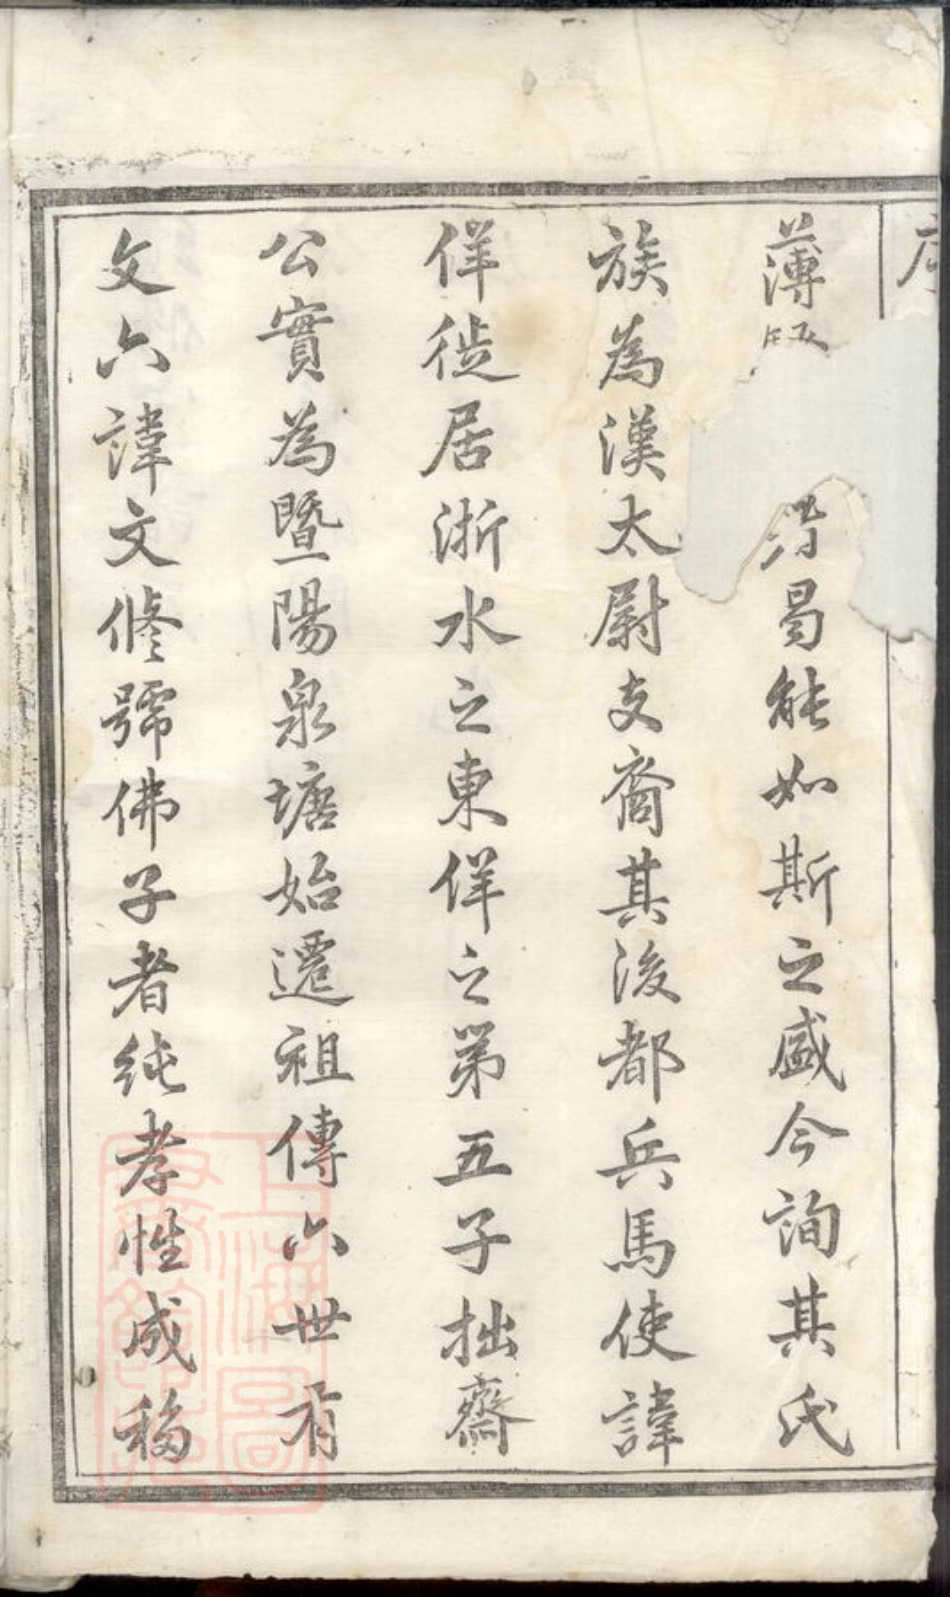 序
薄曷能如斯之盛今詢其氏
族為漢太尉支裔其後都兵馬使諱
佯徙居浙水之東佯之第五子拙齋
公實為暨陽泉塘始遷祖傳六世有
文六諱文修號佛子者純孝性成移
上海圖書館藏